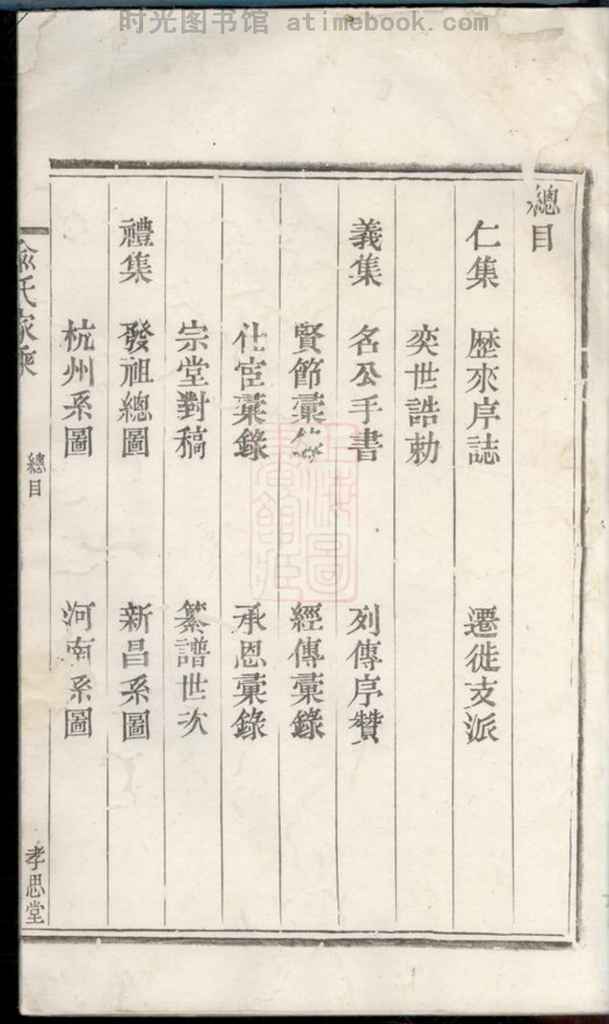 时光图书馆 atimebook.com
總目
仁集 歷來序誌 遷徙支派
奕世誥勅
義集 名公手書 列傳序贊
賢節彙錄 經傳彙錄
仕宦彙錄 承恩彙錄
宗堂對稿 纂譜世次
禮集 發祖總圖 新昌系圖
杭州系圖 河南系圖
俞氏家乘 總目 孝思堂